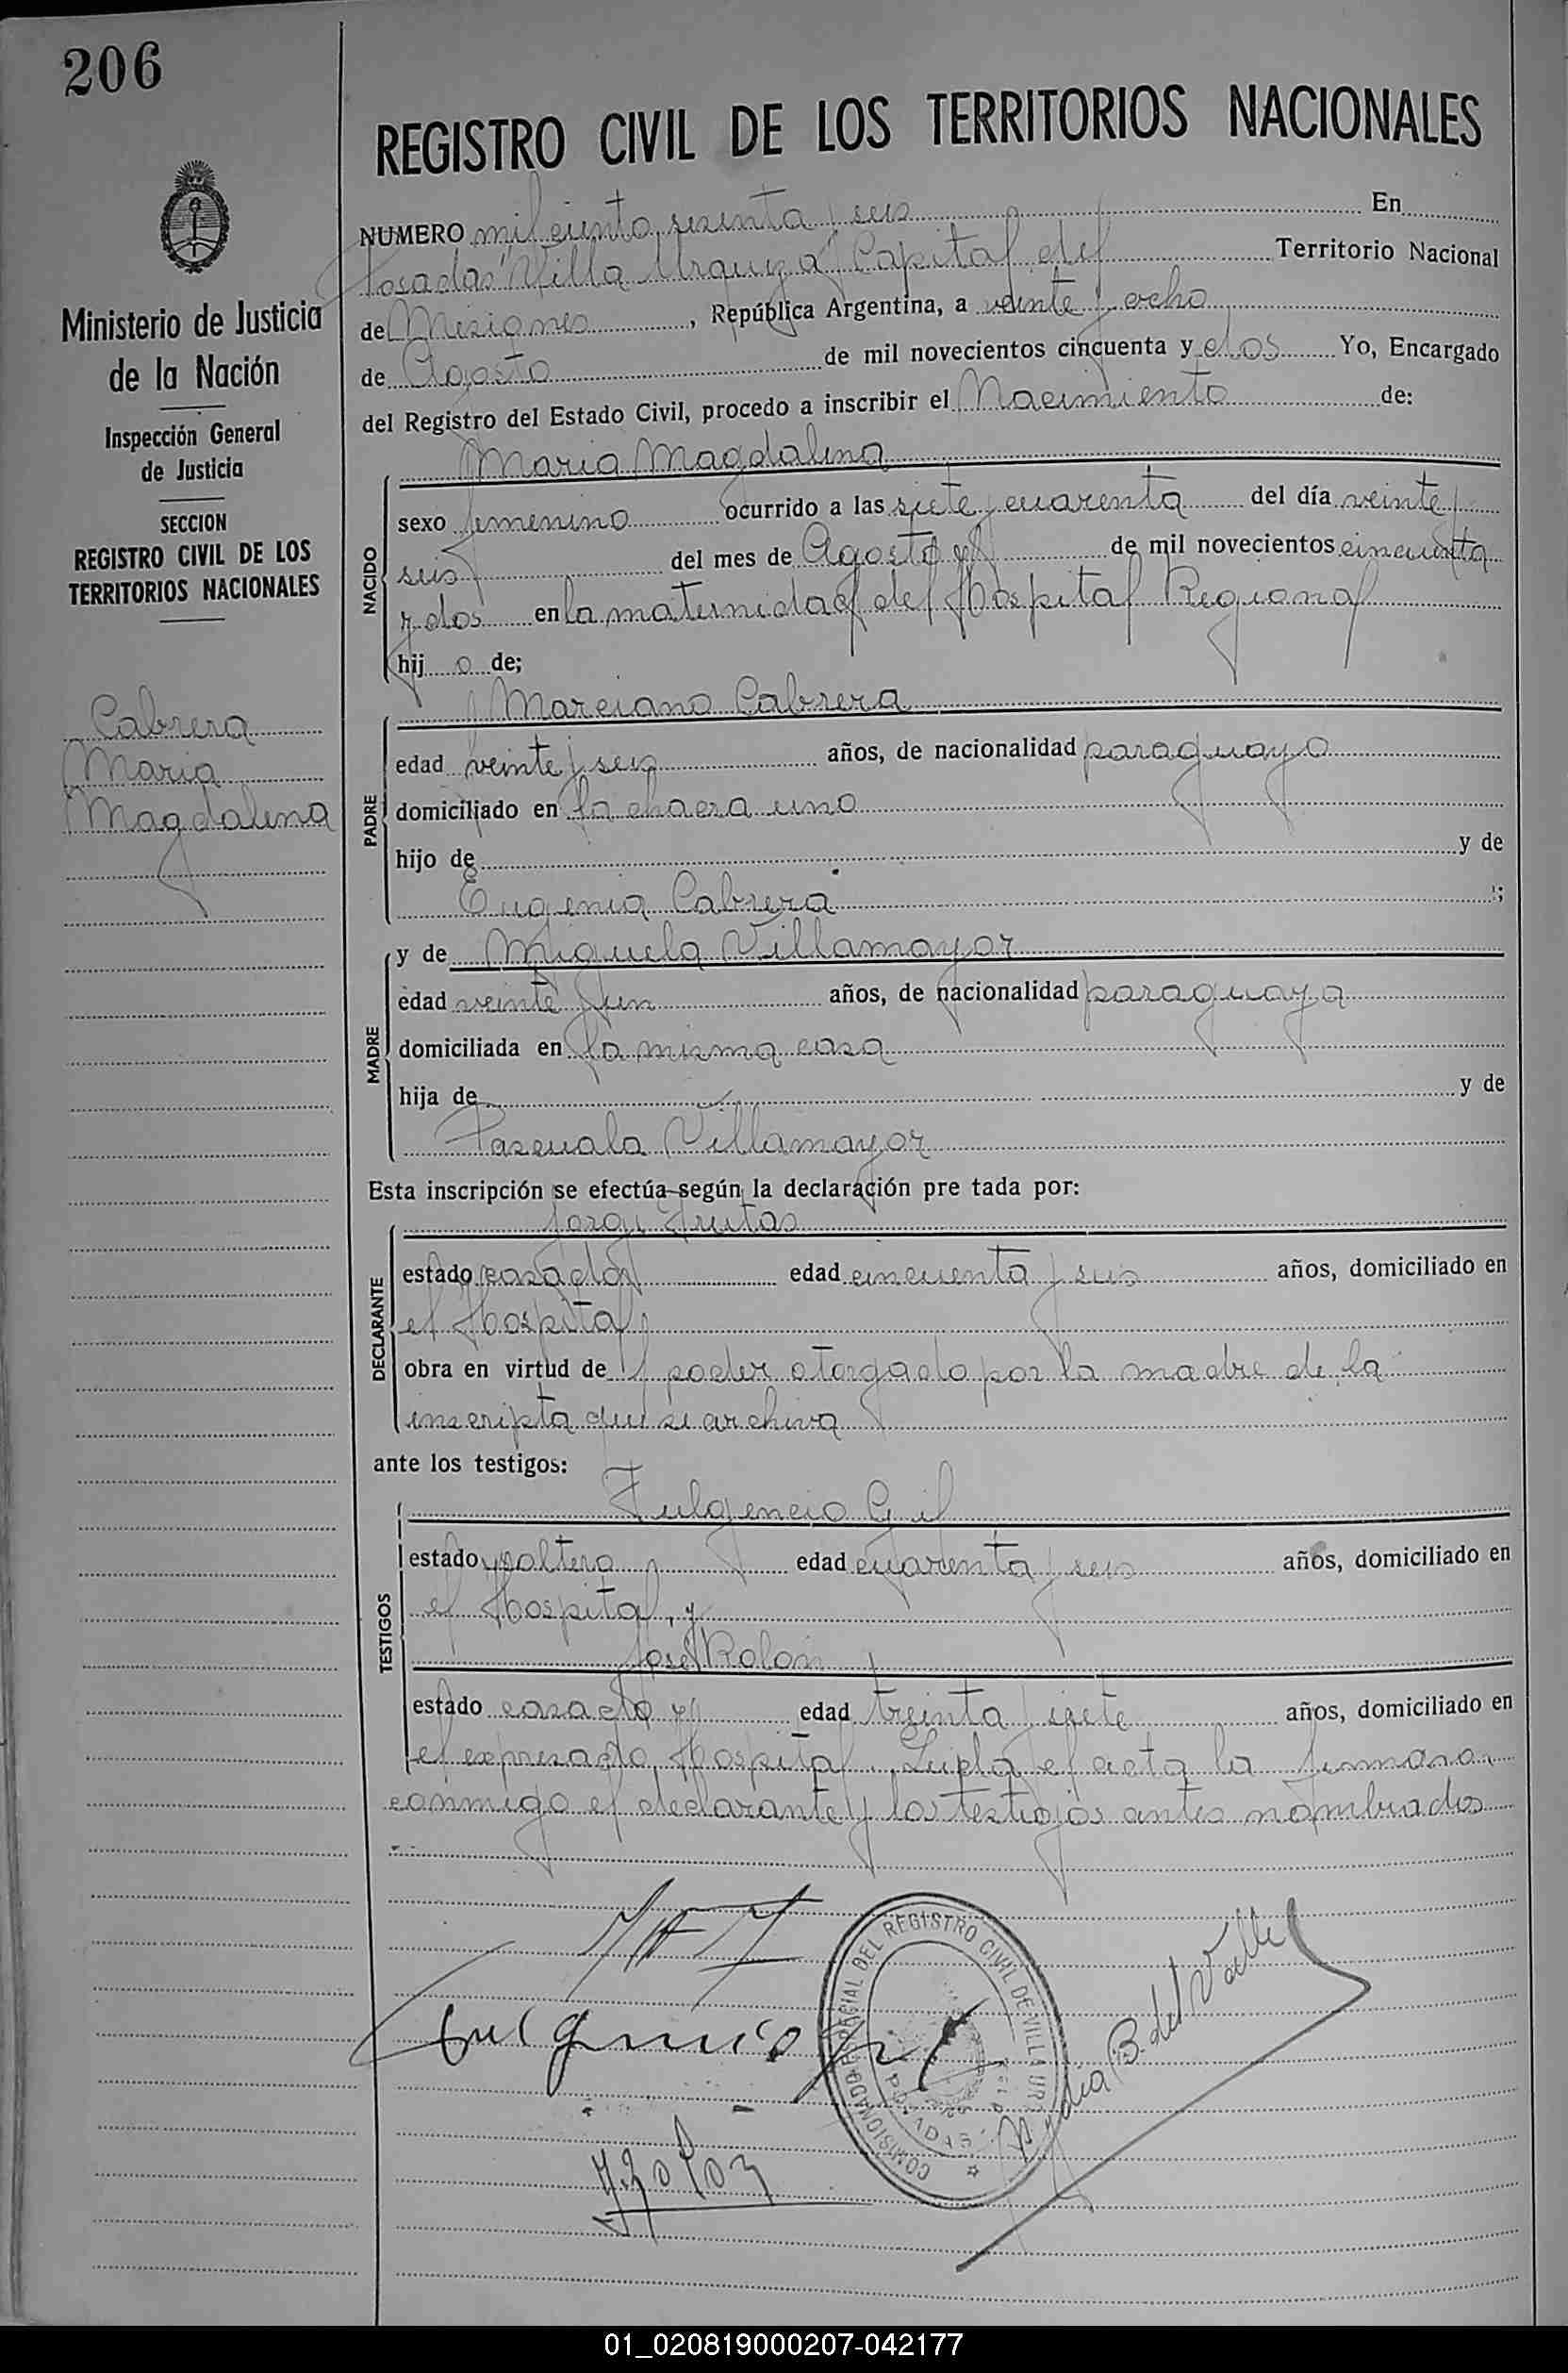 206
REGISTRO CIVIL DE LOS TERRITORIOS NACIONALES
Ministerio de Justicia
de la Nación
Inspección General
de Justicia
SECCION
REGISTRO CIVIL DE LOS
TERRITORIOS NACIONALES
Cabrera
Maria
Magdalena
NUMERO mil ciento sesenta y seis En
Posadas "Villa Urquiza" Capital del Territorio Nacional
de Misiones, República Argentina, a veinte y ocho
de Agosto de mil novecientos cincuenta y dos Yo, Encargado
del Registro del Estado Civil, procedo a inscribir el Nacimiento de:
Maria Magdalena
NACIDO
sexo femenino ocurrido a las siete y cuarenta del día veinte y
seis del mes de Agosto de mil novecientos cincuenta
y dos en la maternidad del Hospital Regional
hij a de;
Marciano Cabrera
PADRE
edad veinte y seis años, de nacionalidad paraguayo
domiciliado en la chacra uno
hijo de y de
Eugenia Cabrera ;
MADRE
y de Miguela Villamayor
edad veinte y un años, de nacionalidad paraguaya
domiciliada en la misma casa
hija de y de
Pascuala Villamayor
Esta inscripción se efectúa según la declaración pre tada por:
Jorge Freitas
DECLARANTE
estado casado edad cincuenta y seis años, domiciliado en
el Hospital
obra en virtud de poder otorgado por la madre de la
inscripta que se archiva
ante los testigos:
Fulgencio Gil
TESTIGOS
estado soltero edad cuarenta y seis años, domiciliado en
el Hospital, y
José Rolon
estado casado edad treinta y siete años, domiciliado en
el expresado Hospital. Leída el acta la firmaron
conmigo el declarante y los testigos antes nombrados
Fulgencio Gil
COMISIONADO ESPECIAL DEL REGISTRO CIVIL DE VILLA UR
POSADAS
B. del Valle
J. Rolon
01_020819000207-042177